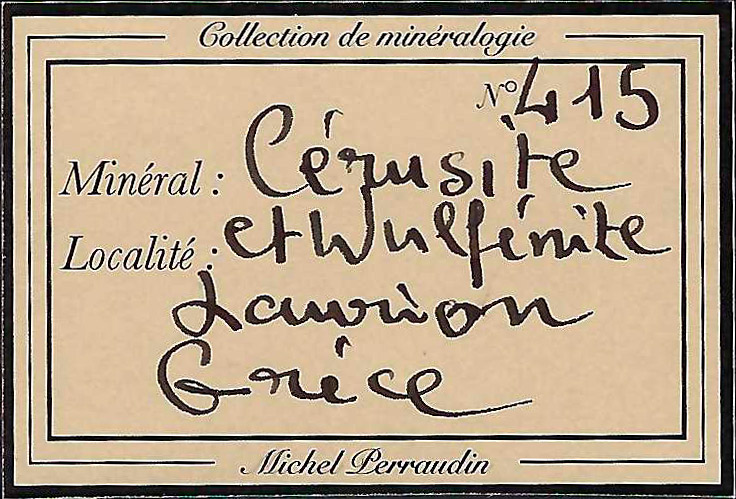 Collection de minéralogie
N° 415
Minéral : Cérusite
Localité : et Wulfénite
Laurion
Grèce
Michel Perraudin